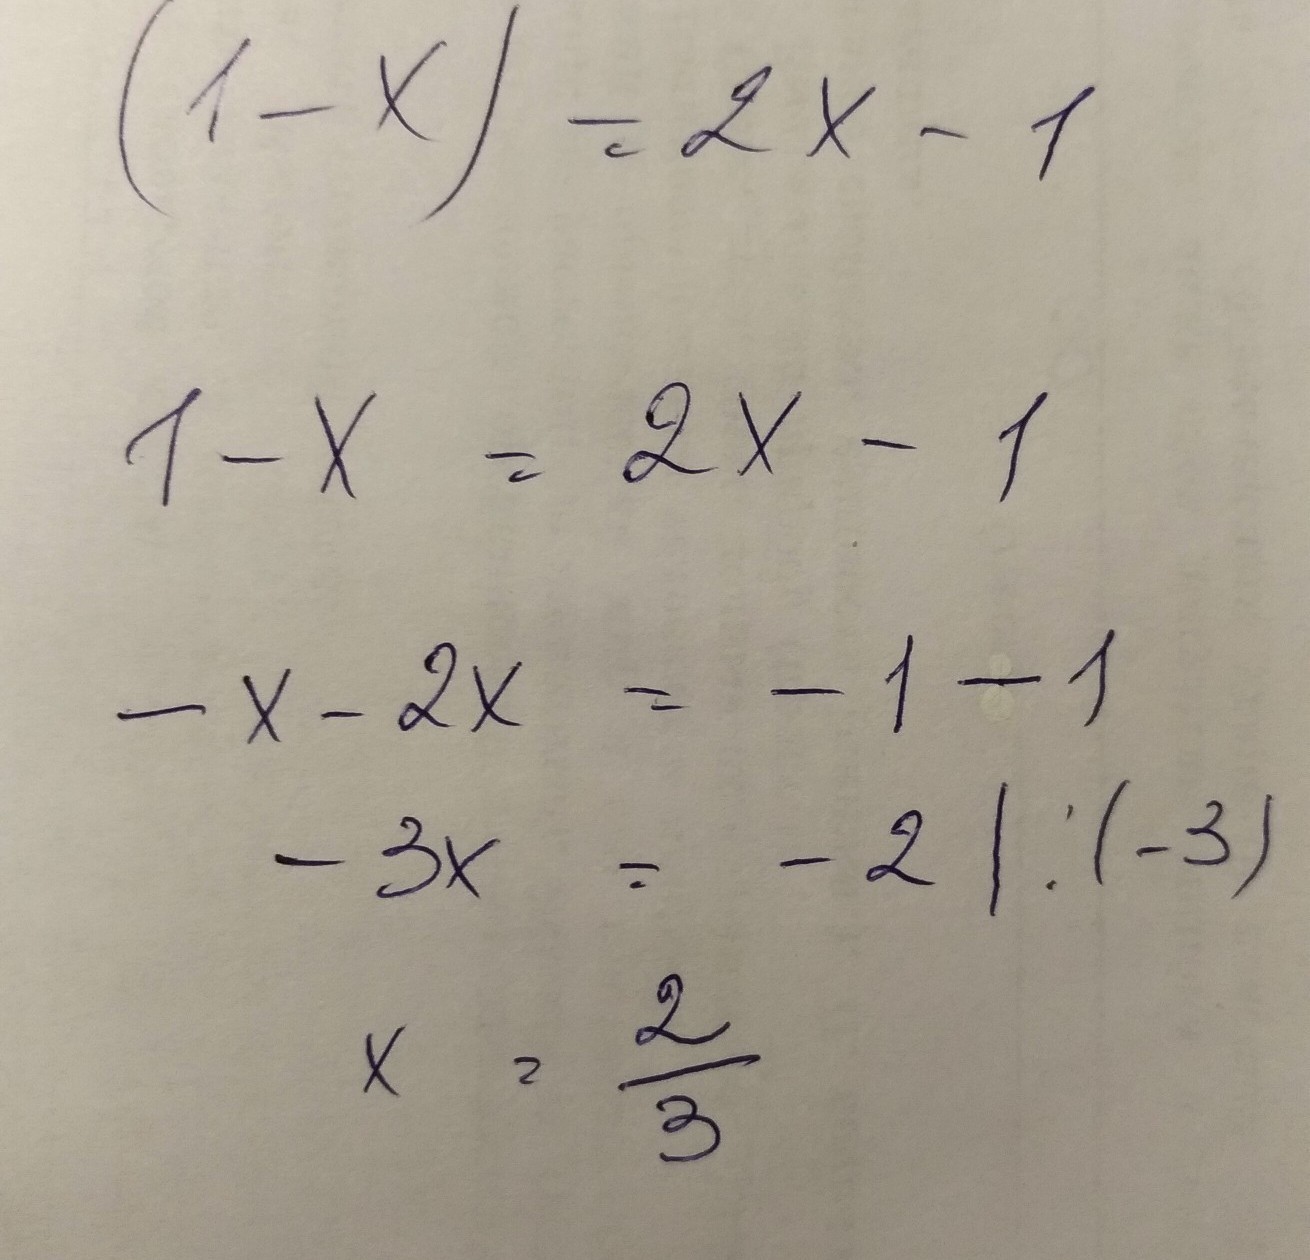 (1 - x) = 2x - 1
1 - x = 2x - 1
- x - 2x = - 1 - 1
- 3x = - 2 | : (-3)
x = 2/3